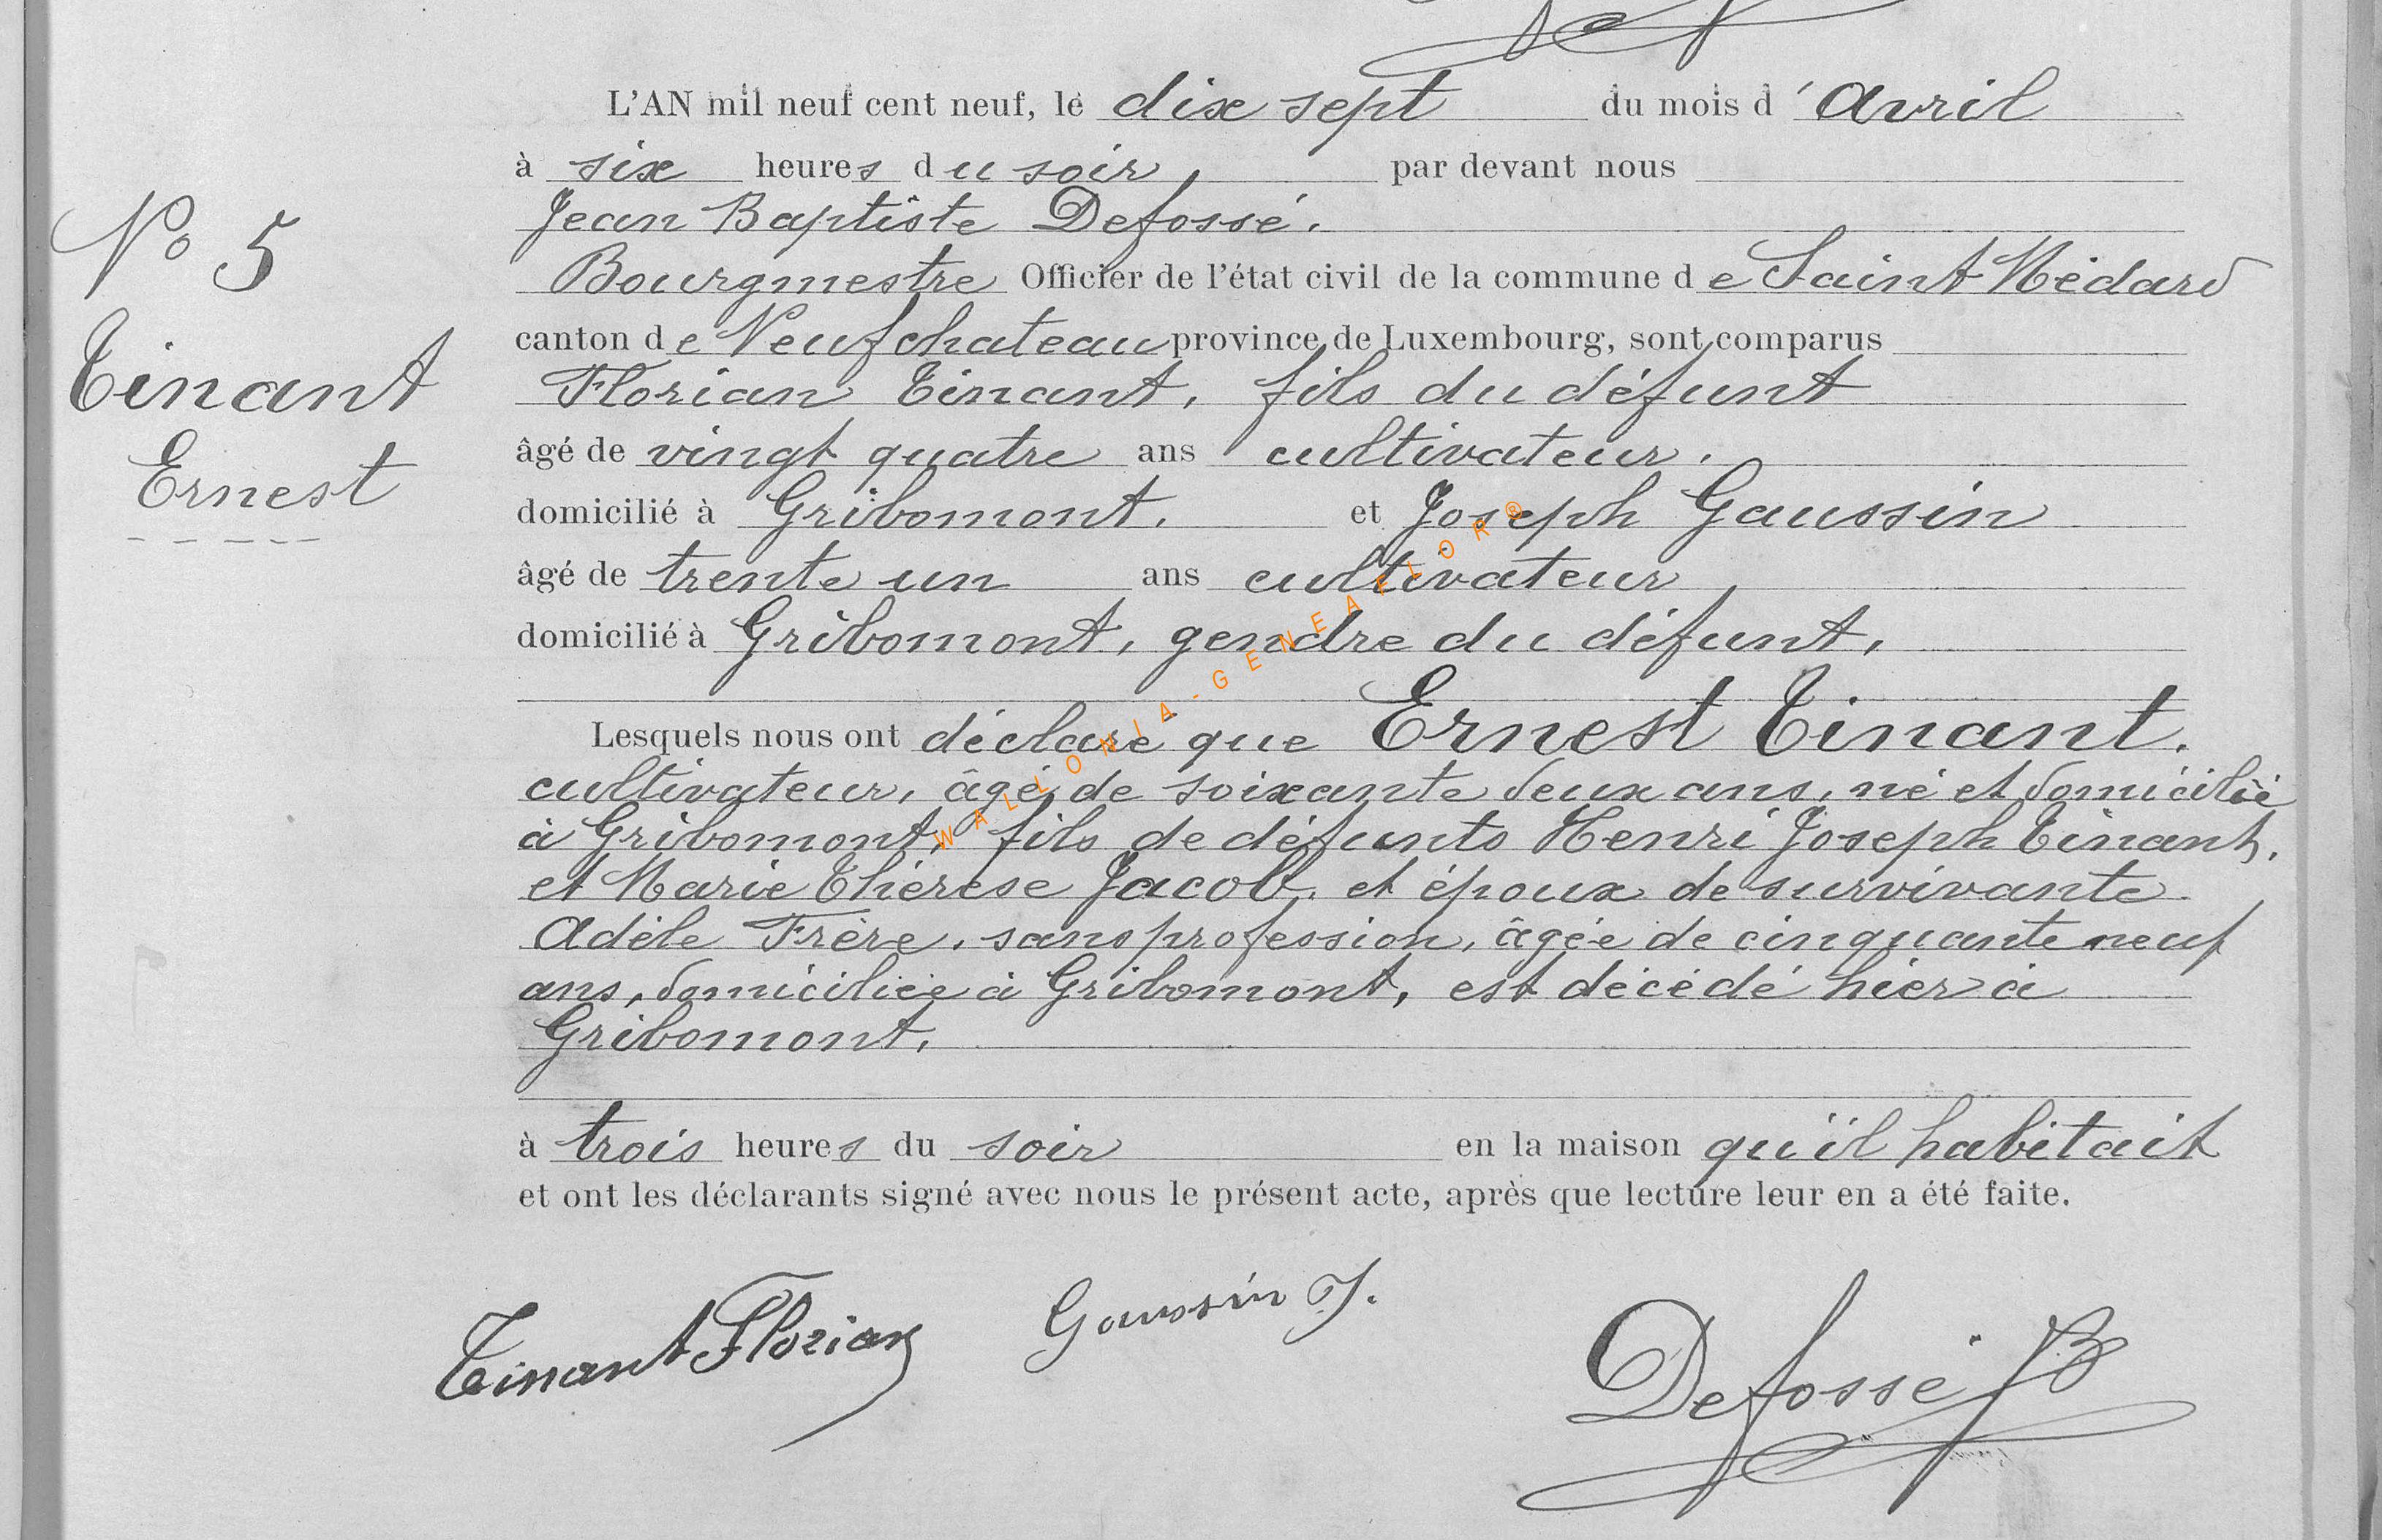 L'AN mil neuf cent neuf, le dix sept du mois d'Avril
à six heures du soir, par devant nous
Jean Baptiste Defossé.
Bourgmestre Officier de l'état civil de la commune de Saint Médard
canton de Neufchateau province de Luxembourg, sont comparus
Florian Tinant, fils du défunt
âgé de vingt quatre ans cultivateur.
domicilié à Gribomont. et Joseph Gaussin
âgé de trente un ans cultivateur
domicilié à Gribomont, gendre du défunt,
Lesquels nous ont déclaré que Ernest Tinant.
cultivateur, âgé de soixante deux ans, né et domicilié
à Gribomont, fils de défunts Henri Joseph Tinant,
et Marie Thérèse Jacob, et époux de survivante
Adèle Frère, sans profession, âgée de cinquante neuf
ans, domiciliée à Gribomont, est décédé hier à
Gribomont.
à trois heures du soir en la maison qu'il habitait
et ont les déclarants signé avec nous le présent acte, après que lecture leur en a été faite.
Tinant Florian Gaussin J. Defossé JB
No 5
Tinant
Ernest
WALLONIA-GENEAFLOR®